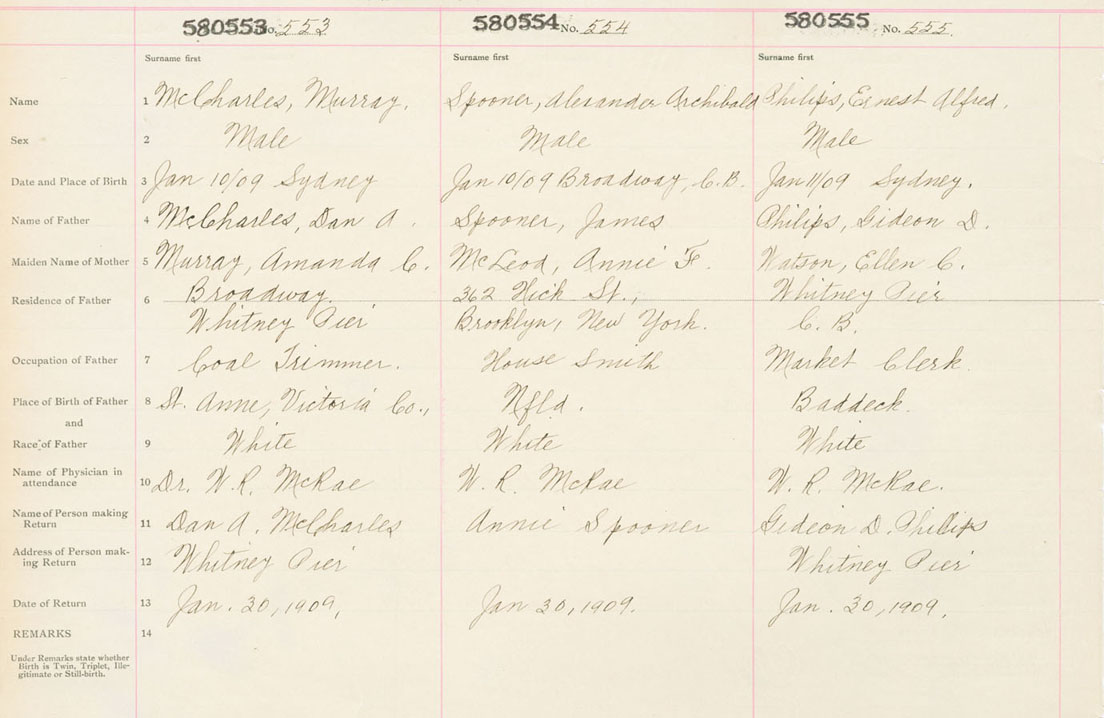 580553 No. 553 580554 No. 554 580555 No. 555.
Surname first Surname first Surname first
Name 1 McCharles, Murray. Spooner, Alexander Archibald Philips, Ernest Alfred.
Sex 2 Male Male Male
Date and Place of Birth 3 Jan 10/09 Sydney Jan 10/09 Broadway, C.B. Jan 11/09 Sydney.
Name of Father 4 McCharles, Dan A. Spooner, James Philips, Gideon D.
Maiden Name of Mother 5 Murray, Amanda C. McLeod, Annie F. Watson, Ellen C.
Residence of Father 6 Broadway. 362 Hick St., Whitney Pier
Whitney Pier Brooklyn, New York. C. B.
Occupation of Father 7 Coal Trimmer. House Smith Market Clerk.
Place of Birth of Father 8 St. Anne, Victoria Co., Nfld. Baddeck.
and
Race of Father 9 White White White
Name of Physician in
attendance 10 Dr. W. R. McRae W. R. McRae W. R. McRae.
Name of Person making
Return 11 Dan A. McCharles Annie Spooner Gideon D. Philips
Address of Person mak-
ing Return 12 Whitney Pier Whitney Pier
Date of Return 13 Jan. 30, 1909, Jan 30, 1909. Jan. 30, 1909.
REMARKS 14
Under Remarks state whether
Birth is Twin, Triplet, Ille-
gitimate or Still-birth.